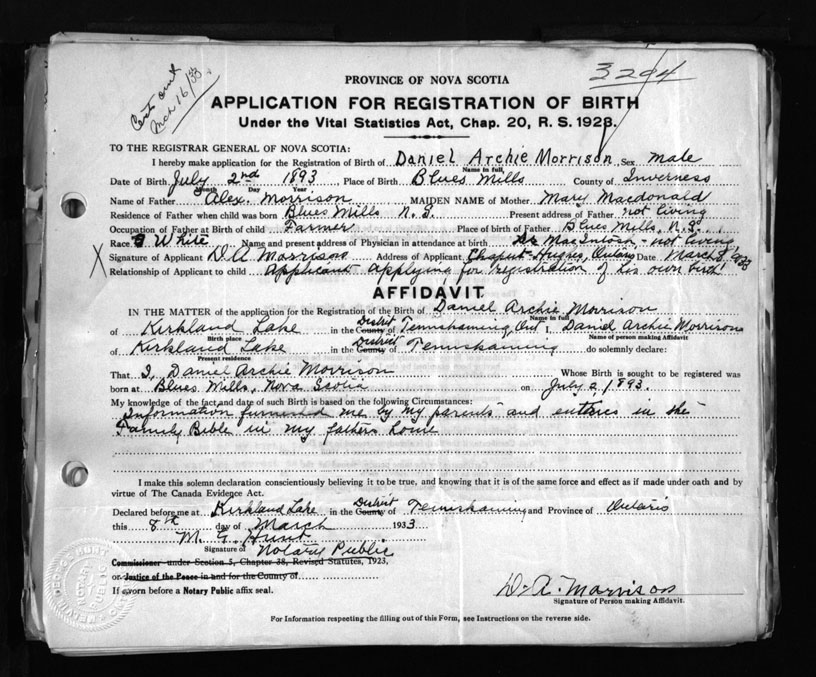 Certs out
Mch 16/33
3294
PROVINCE OF NOVA SCOTIA
APPLICATION FOR REGISTRATION OF BIRTH
Under the Vital Statistics Act, Chap. 20, R. S. 1923.
TO THE REGISTRAR GENERAL OF NOVA SCOTIA:
I hereby make application for the Registration of Birth of Daniel Archie Morrison Sex male
Name in full
Date of Birth July 2nd 1893 Place of Birth Blues Mills County of Inverness
Month Day Year
Name of Father Alex. Morrison MAIDEN NAME of Mother Mary Macdonald
Residence of Father when child was born Blues Mills N.S. Present address of Father not living
Occupation of Father at Birth of child Farmer Place of birth of Father Blues Mills, N.S.
Race White Name and present address of Physician in attendance at birth Dr MacIntosh - not living
X Signature of Applicant D A Morrison Address of Applicant Chaput Hughes, Ontario Date March 8, 1933
Relationship of Applicant to child Applicant applying for registration of his own birth
AFFIDAVIT
IN THE MATTER of the application for the Registration of the Birth of Daniel Archie Morrison
Name in full
of Kirkland Lake in the County District of Temiskaming, Ont I, Daniel Archie Morrison
Birth place Name of person making Affidavit
of Kirkland Lake in the County District of Temiskaming do solemnly declare:
Present residence
That I, Daniel Archie Morrison Whose Birth is sought to be registered was
born at Blues Mills, Nova Scotia on July 2 1893.
My knowledge of the fact and date of such Birth is based on the following Circumstances:
Information furnished me by my parents and entries in the
Family Bible in my fathers home
I make this solemn declaration conscientiously believing it to be true, and knowing that it is of the same force and effect as if made under oath and by
virtue of The Canada Evidence Act.
Declared before me at Kirkland Lake in the County District of Temiskaming and Province of Ontario
this 8th day of March 1933
M. G. Hunt
Signature of Notary Public
Commissioner under Section 5, Chapter 38, Revised Statutes, 1923,
or Justice of the Peace in and for the County of
If sworn before a Notary Public affix seal.
D. A. Morrison
Signature of Person making Affidavit.
For Information respecting the filling out of this Form, see Instructions on the reverse side.